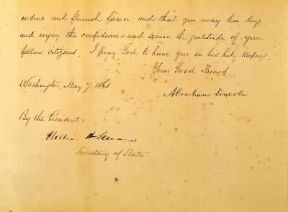 and that you may live long
and enjoy the confidence and gratitude of your
fellow citizens. I pray God to have you in his holy keeping
Your Good Friend.
Washington, May 7, 1861
Abraham Lincoln
By the President.
H Seward
Secretary of State